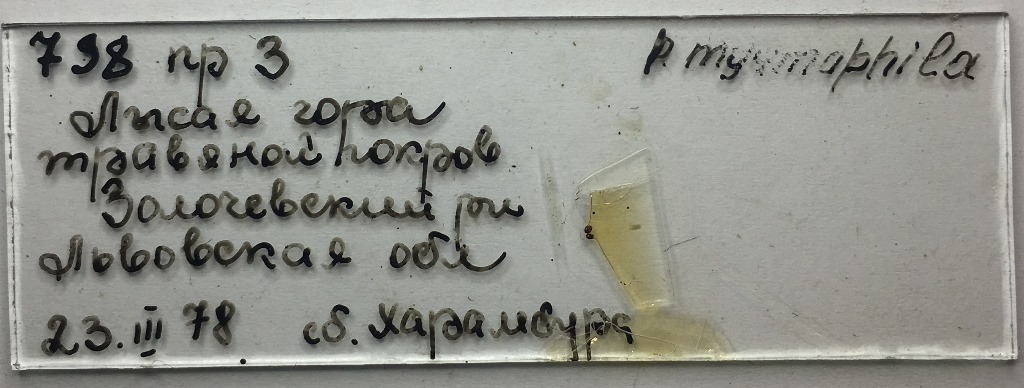 798 пр 3
P. myrmaphila
Лысая гора
травяной покров
Золочевский рн
Львовская обл
23.III 78 сб. Харамбура